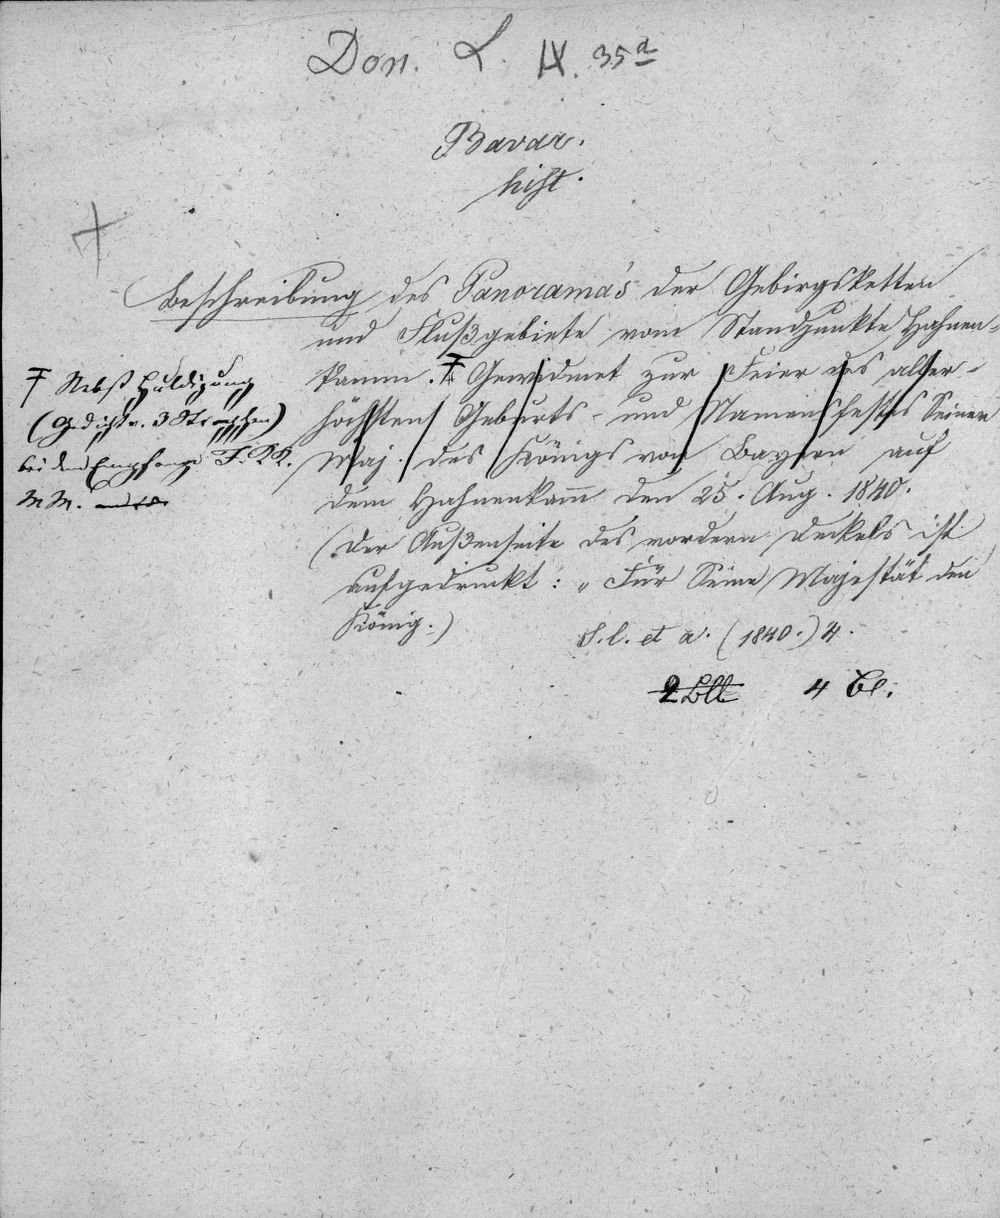 Don. L. IX. 35d
Bavar.
hist.
Beschreibung des Panorama's der Gebirgsketten
und Flußgebiete vom Standpunkte Hahnen-
kamm. Ŧ Gewidmet zur Feier des aller-
höchsten Geburts- und Namensfestes Seiner
Maj. des Königs von Bayern auf
dem Hahnenkam̄ den 25. Aug. 1840.
(Der Außenseite des vordern Deckels ist
aufgedruckt: „Für Seine Majestät den
König.)
S. l. et a. (1840.) 4.
2 Bll 4 Bl.
Ŧ Nebst Huldigung
(Gedicht v. 3 Strophen)
bei dem Empfange I. K. K.
M M.